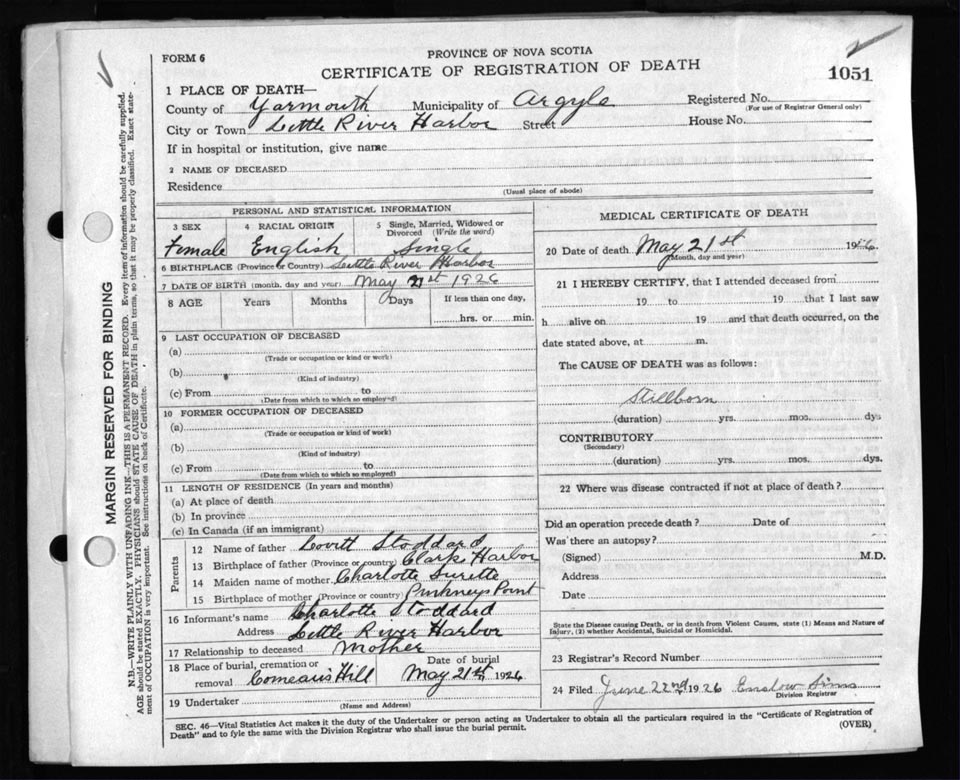 FORM 6
PROVINCE OF NOVA SCOTIA
CERTIFICATE OF REGISTRATION OF DEATH
1051
1 PLACE OF DEATH—
County of Yarmouth Municipality of Argyle Registered No.
(For use of Registrar General only)
City or Town Little River Harbor Street House No.
If in hospital or institution, give name
2 NAME OF DECEASED
Residence
(Usual place of abode)
PERSONAL AND STATISTICAL INFORMATION
3 SEX 4 RACIAL ORIGIN 5 Single, Married, Widowed or Divorced (Write the word)
Female English Single
6 BIRTHPLACE (Province or Country) Little River Harbor
7 DATE OF BIRTH (month, day and year) May 21st 1926
8 AGE Years Months Days If less than one day,
hrs. or min.
9 LAST OCCUPATION OF DECEASED
(a)
(Trade or occupation or kind or work)
(b)
(Kind of industry)
(c) From to
(Date from which to which so employed)
10 FORMER OCCUPATION OF DECEASED
(a)
(Trade or occupation or kind of work)
(b)
(Kind of industry)
(c) From to
(Date from which to which so employed)
11 LENGTH OF RESIDENCE (In years and months)
(a) At place of death
(b) In province
(c) In Canada (if an immigrant)
Parents
12 Name of father Lovitt Stoddard
13 Birthplace of father (Province or country) Clarks Harbor
14 Maiden name of mother Charlotte Surette
15 Birthplace of mother (Province or country) Pinkneys Point
16 Informant's name Charlotte Stoddard
Address Little River Harbor
17 Relationship to deceased Mother
18 Place of burial, cremation or removal Comeau's Hill Date of burial May 21st 1926
19 Undertaker
(Name and Address)
MEDICAL CERTIFICATE OF DEATH
20 Date of death May 21st 1926
(Month, day and year)
21 I HEREBY CERTIFY, that I attended deceased from
19 to 19 that I last saw
h alive on 19 and that death occurred, on the
date stated above, at m.
The CAUSE OF DEATH was as follows:
Stillborn
(duration) yrs. mos. dys
CONTRIBUTORY
(Secondary)
(duration) yrs. mos. dys.
22 Where was disease contracted if not at place of death?
Did an operation precede death? Date of
Was there an autopsy?
(Signed) M.D.
Address
Date
State the Disease causing Death, or in death from Violent Causes, state (1) Means and Nature of
Injury, (2) whether Accidental, Suicidal or Homicidal.
23 Registrar's Record Number
24 Filed June 22nd 1926 Enslow Sims
Division Registrar
SEC. 46—Vital Statistics Act makes it the duty of the Undertaker or person acting as Undertaker to obtain all the particulars required in the "Certificate of Registration of
Death" and to fyle the same with the Division Registrar who shall issue the burial permit.
(OVER)
MARGIN RESERVED FOR BINDING
N.B.—WRITE PLAINLY WITH UNFADING INK—THIS IS A PERMANENT RECORD. Every item of information should be carefully supplied.
AGE should be stated EXACTLY. PHYSICIANS should STATE CAUSE OF DEATH in plain terms, so that it may be properly classified. Exact state-
ment of OCCUPATION is very important. See instructions on back of Certificate.